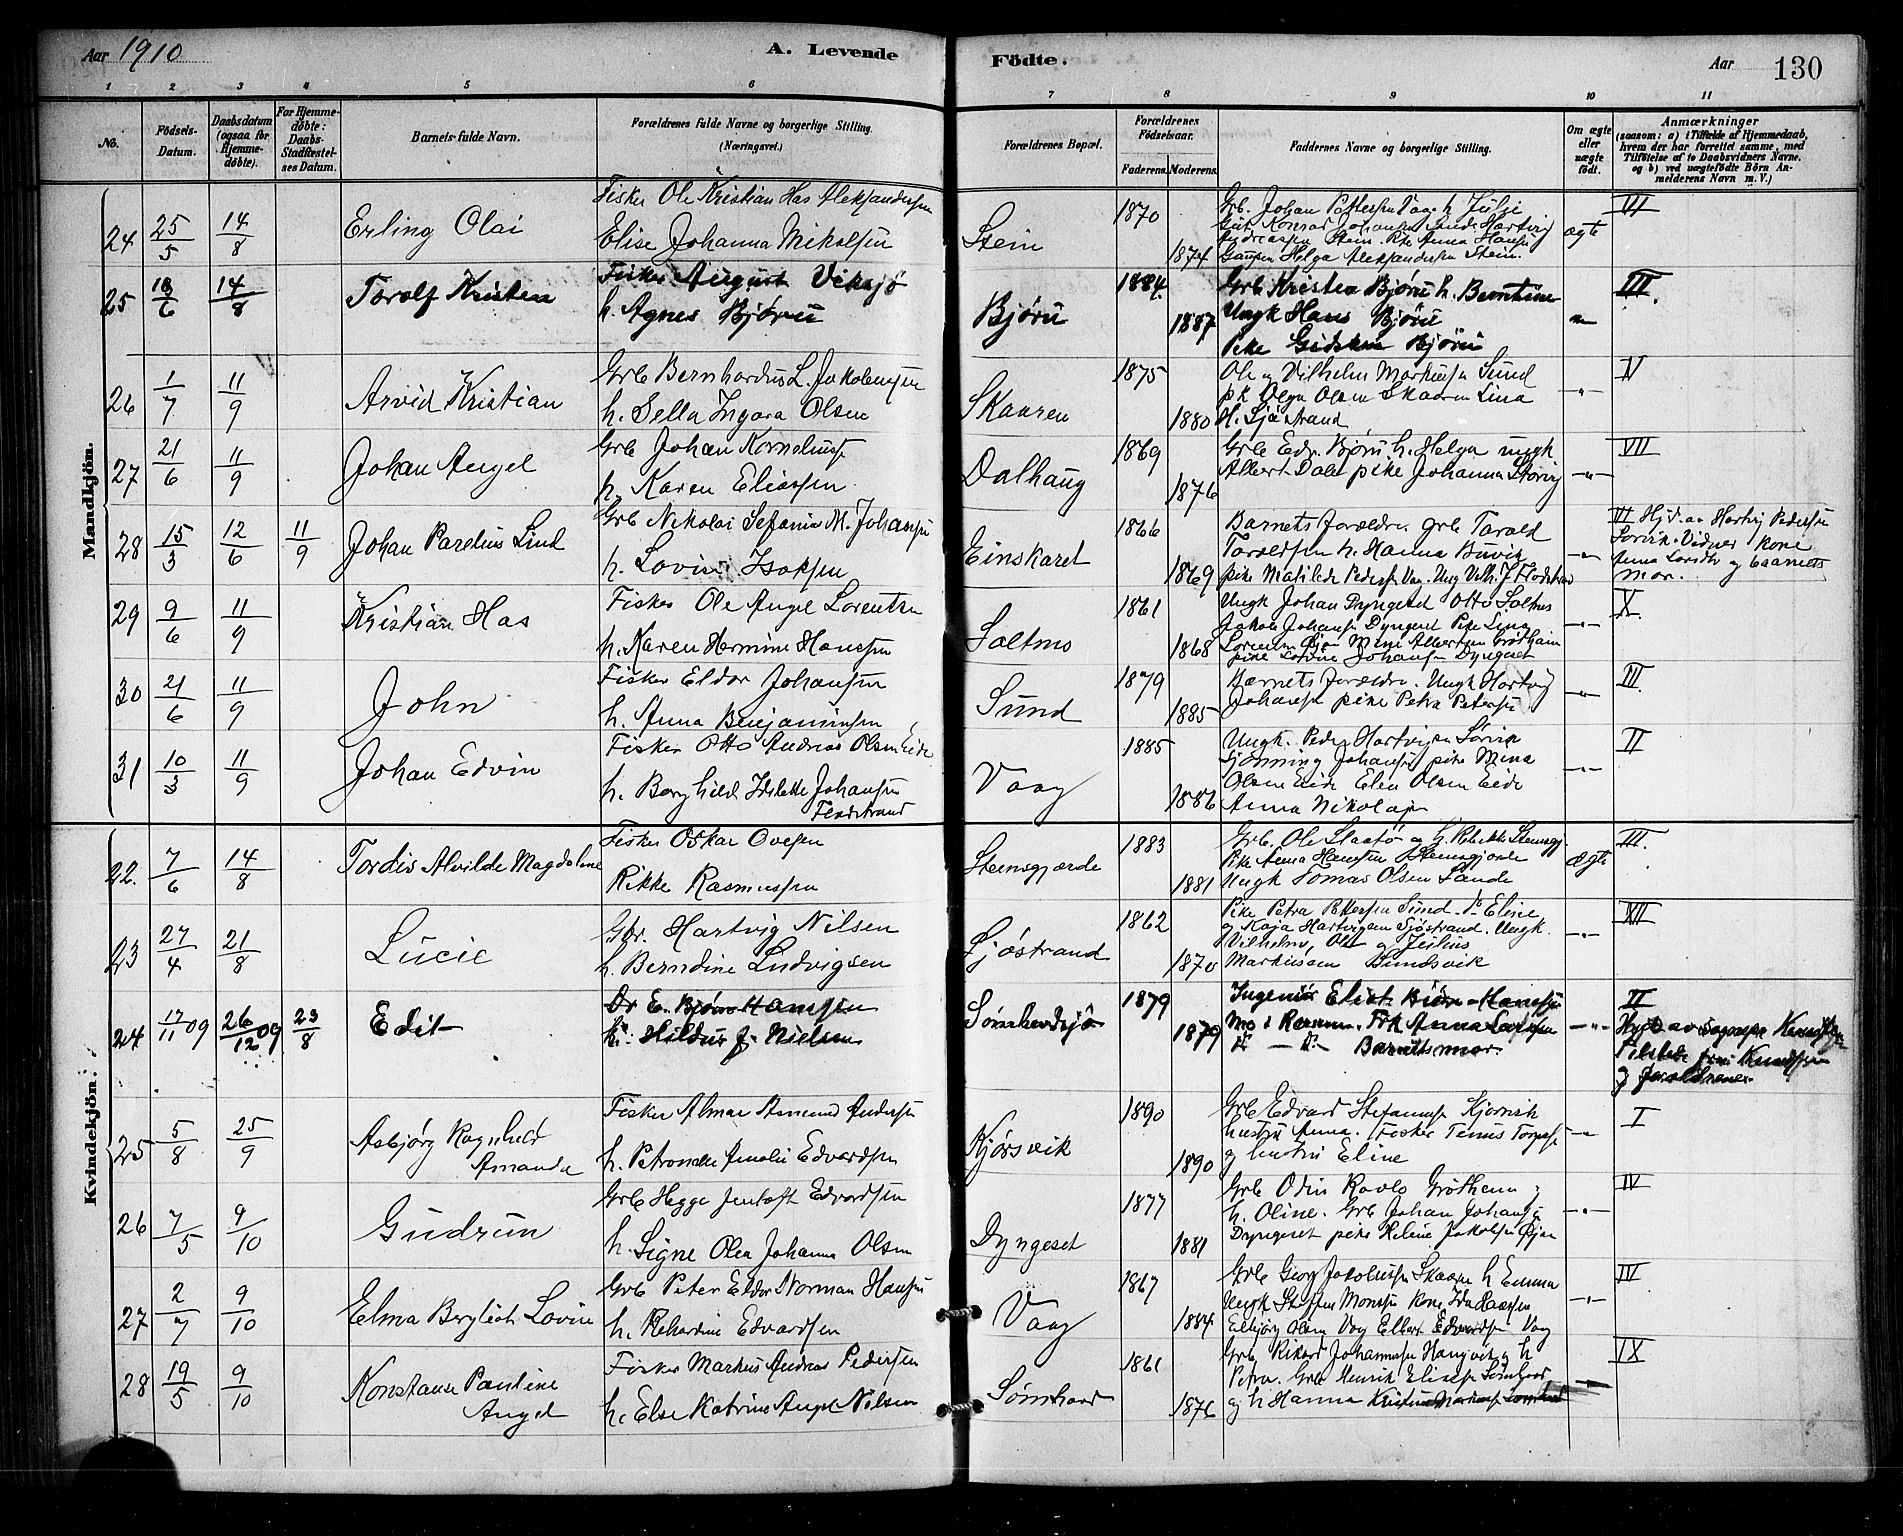 Aar 1910
A. Levende
Födte.
Aar
130
1 2 3 4 5 6 7 8 9 10 11
No.
Födsels-Datum.
Daabsdatum (ogsaa for Hjemme-döbte).
For Hjemme-döbte: Daabs-Stadfæstel-ses Datum.
Barnets fulde Navn.
Forældrenes fulde Navne og borgerlige Stilling.
(Næringsvei.)
Forældrenes Bopæl.
Forældrenes Födselsaar.
Faderens. Moderens.
Faddernes Navne og borgerlige Stilling.
Om ægte eller uægte födt.
Anmærkninger
(saasom: a) i Tilfælde af Hjemmedaab, hvem der har forrettet samme, med Tilföielse af to Daabsvidners Navne, og b) ved uægtefödte Börn An-melderens Navn m. V.)
Mandkjön.
24 25/5 14/8 Erling Olai
Fisker Ole Kristian Has Aleksandersen
Elise Johanna Nikolsen
Stein 1870 1874
Grb. Johan Pettersen Vaag h. Julie
Konrad Johansen Sund Hartvig
Andreassen Stein. Pike Anna Hansen
Helga Aleksandersen Stein.
ægte VII
25 /6 14/8 Torolf Kristen
Fisker August Viksjö
h. Agnes Bjørnü
Bjørü 1884. 1887
Grb Kristen Bjørü h. Berntine
Ungk Hans Bjørü
Pike Gidsken Bjørü
-"- III.
26 1/7 11/9 Arvid Kristian
Grb Bernhardus L. Jakobsen
h. Sella Ingara Olsen
Skaaren 1875 1880
Ole og Vilhelm Markussen Sund
pk Olga Olsen Skaaren Lina
H. Sjøstrand
-"- IV
27 21/6 11/9 Johan Angel
Grb Johan Korneliuss
h. Karen Eliassen
Dalhaug 1869 1876
Grb Edv. Bjøru h. Helga ungk
Albert Dale pike Johanna Storvig
-"- VII
28 15/3 12/6 11/9 Johan Parelius Lind
Grb Nikolai Sefanias M. Johansen
h. Lovine Isaksen
Einskaret 1866 1869
Barnets forældre. grb Torald
Toraldsen h. Hanna Buvik
pike Matilde Pedersen Vaag. Ung Vilh. J. Flodstrand
-"- VI Hjd. av Hartvig Pedersen
Sørvik. Vidner kone
Anna og barnets
mor.
29 9/6 11/9 Kristian Has
Fisker Ole Angel Lorentsen
h. Karen Hermine Hanssen
Soltmo 1861 1868
Ungk Johan Dyngeset Otto Soltmo
Jakob Johansen Dyngeset Pike Lina
Lorentsen Mine Albertsen Grøthaim
pike Lovine Johansen Dyngeset
-"- X
30 21/6 11/9 John
Fisker Eldor Johansen
h. Anna Benjaminsen
Sund 1879 1885
Barnets forældre. Ungk Hartvig
Johansen pike Petra Petersen
-"- III.
31 10/3 11/9 Johan Edvin
Fisker Otto Andreas Olsen Eide
h. Borghild Johansen
Flodstrand
Vaag 1885 1886
Ungk. Peder Hartvigsen Sørvik
Gjønning Johansen pike Mina
Olsen Eide Elen Olsen Eide
Anna Nikolaisen
-"- II
Kvindekjön.
22. 7/6 14/8 Tordis Alvilde Magdalene
Fisker Oskar Ovesen
Rikke Rasmussen
Steensgjærde 1883 1881
Grb. Ole Slaatø og h. Rebekka Stensgj.
Pike Anna Hanssen Stensgjærde
Ungk Tomas Olsen Sande
Ægte III.
23 27/4 21/8 Lucie
Gbr. Hartvig Nilsen
h. Berndine Ludvigsen
Sjøstrand 1862 1870
Pike Petra Pettersen Sund. do Eline
og Kaja Hartvigsen Sjøstrand. Ungk.
Vilhelm, Ole og Julius
Markussen Sundsvik
-"- XII
24 17/11 09 26/12 09 23/8 Edit
Dr E. Bjørn Hanssen
h. Hildur J. Nielsen
Sømhovdsjö 1879 1879
Ingeniør Eliot Bjørn-Hanssen
Mo i Ranen. Frk Anna Larssen
do - do - Barnets mor.
-"- II
Hjd av sognepr Knudssen
Tilstede fru Knudssen
og forældrene
25 5/8 25/9 Asbjørg Ragnhild Amanda
Fisker Almar Amund Andersen
h. Petronelle Amalie Edvardsen
Kjørsvik 1890 1890
Grb Edvard Stefanussen Kjørsvik
hustru Anna. Fisker Tenus
og hustru Eline
-"- I
26 7/5 9/10 Gudrun
Grb Hegge Jentoft Edvardsen
h. Signe Olea Johanna Olsen
Dyngeset 1877 1881
Grb Odin Ravlo Grøthem
h. Oline. Grb Johan Johansen
Dyngeset pike Heline Jakobsen Øjan
-"- IV
27 2/7 9/10 Elma Bergliot Lovine
Grb Peter Eldor Norman Hansen
h. Rikardine Edvardsen
Vaag 1867 1884
Grb Georg Jakobsen Skaaren h Emma
Ungk Steffen Monssen kone Ida Hanssen
Eilbjørg Olsen Vaag Elbert Edvardsen Vaag
-"- IV
28 19/5 9/10 Konstanse Pauline Angel
Fisker Markus Andreas Pedersen
h. Else Katrine Angel Nilsen
Sømhovd 1861 1876
Grb Rikard Johannessen Hamnvik og h
Petra. Grb Henrik Eliassen Sømhovd
og h Hanna Kristine Markussen Sømhovd
IX